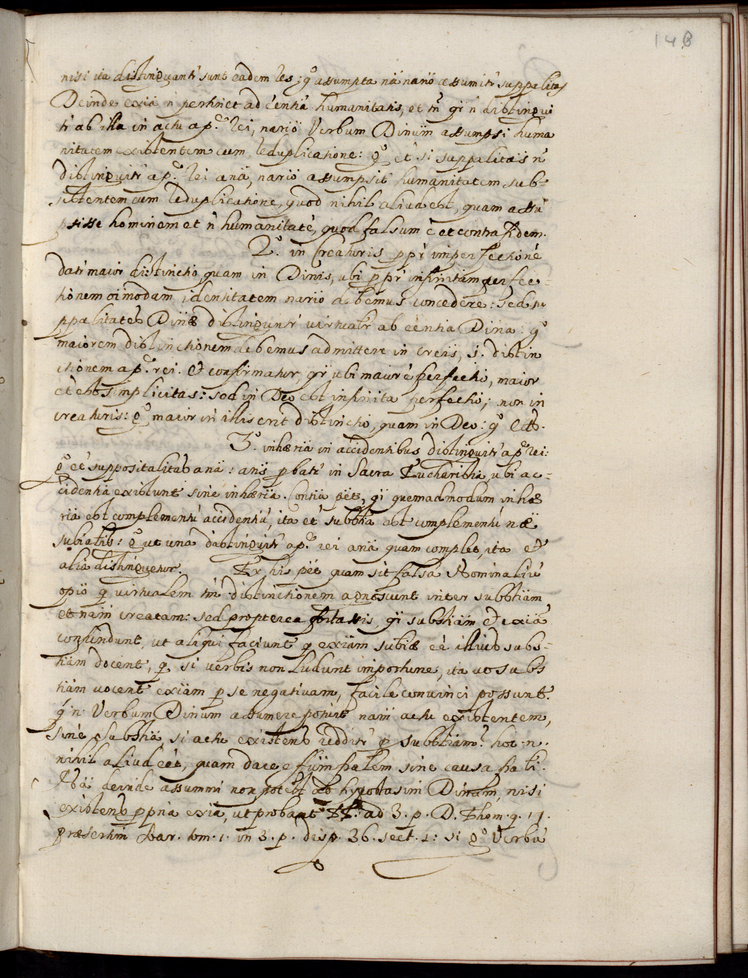 148
nisi ita distinguantr sunt eadem res; gͦ assumpta nã nariò assumitr suppalitas
Deinde exĩa ñ pertinet ad ẽntia humanitatis, et tñ qi ñ distingui
tr ab illa in actu a p. rei, nariò Verbum Dinũm assumpsi huma
nitatem existentem cum reduplicatione: gͦ et si suppalitas ñ
distinguitr a p. rei a nã, nariò assumpsit humanitatem, sub-
sistentem cum reduplicatione, quod nihil aliud est, quam assũ
psisse hominem et ñ humanitatẽ, quod falsum ẽ et contra fidem.
2.º in Creaturis pptr imperfectionẽ
datr maior distinctio, quam in Dinis, ubi pptr infinitam perfec-
tionem oĩmodam identitatem nariò debemus concedere: sed su
ppalitates Dinæ distinguntr virtualr ab ẽntia Dina: gͦ
maiorem distinctionem debemus admittere in creis, s. distin
ctionem a p. rei. Et confirmatur, qi ubi maior ẽ perfectio, maior
et est simplicitas: sed in Deo est infinita perfectio, non in
creaturis: gͦ maior in illis erit distinctio, quam in Deo: gͦ etc.
3.º inhæria in accidentibus distinguitr a p. rei:
gͦ et suppositalitas a nã: ans pbatr in Sacra Eucharistia ubi ac-
cidentia existunt sine inhæria. Contia pẽt, qi quemadmodum inhæ
ria est complementũ accidentiũ, ita et subtia est complementũ næ
subialis: gͦ ut una distinguitr a p. rei a nã quam complet, ita et
alia distinguetur. Ex his pẽt quam sit falsa Nominaliũ
opiò q virtualem tm̃ distinctionem agnoscunt inter subtiãm
et nam creatam: sed propterea fortassis, qi subtiãm et exĩa
confundunt, ut aliqui faciunt q exĩam subiæ eẽ illius subs-
tiãm docent, q. si verbis non ludunt importune, ita ut subs
tiãm vocent exĩam p se negativam, facile convinci possunt.
qi ñ Verbum Dinum assumere potuit nam actu existentem,
sine subtiã si actu existens redditr p subtiãm: hoc n.
nihil aliud eẽt, quam dare effũm formalem sine causa formali.
Nã deinde assumi non potest ab hypostasim Dinam, nisi
existens ppria exĩa, ut probant TT. ad 3. p. D. Thom. q. 17.
præsertim Suar. tom. 1. in 3. p. disp. 36. sect. 1: si gͦ Verbũ